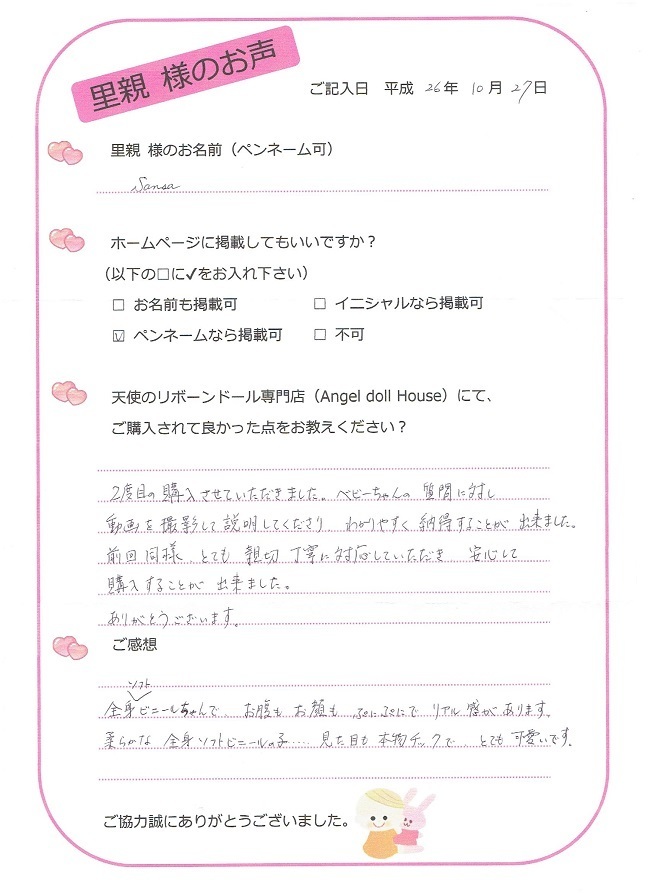 里親 様のお声
ご記入日 平成 26年 10月 27日
里親 様のお名前（ペンネーム可）
Sansa
ホームページに掲載してもいいですか？
（以下の□に✓をお入れ下さい）
□ お名前も掲載可 □ イニシャルなら掲載可
☑ ペンネームなら掲載可 □ 不可
天使のリボーンドール専門店（Angel doll House）にて、
ご購入されて良かった点をお教えください？
2度目の購入させていただきました。ベビーちゃんの質問に対し
動画を撮影して説明してくださり わかりやすく納得することが出来ました。
前回同様、とても親切丁寧に対応していただき 安心して
購入することが出来ました。
ありがとうございます。
ご感想
ソフト
全身ビニールちゃんで、お腹もお顔もぷにぷにでリアル感があります。
柔らかな全身ソフトビニールの子‥‥見た目も本物チックでとても可愛いです。
ご協力誠にありがとうございました。